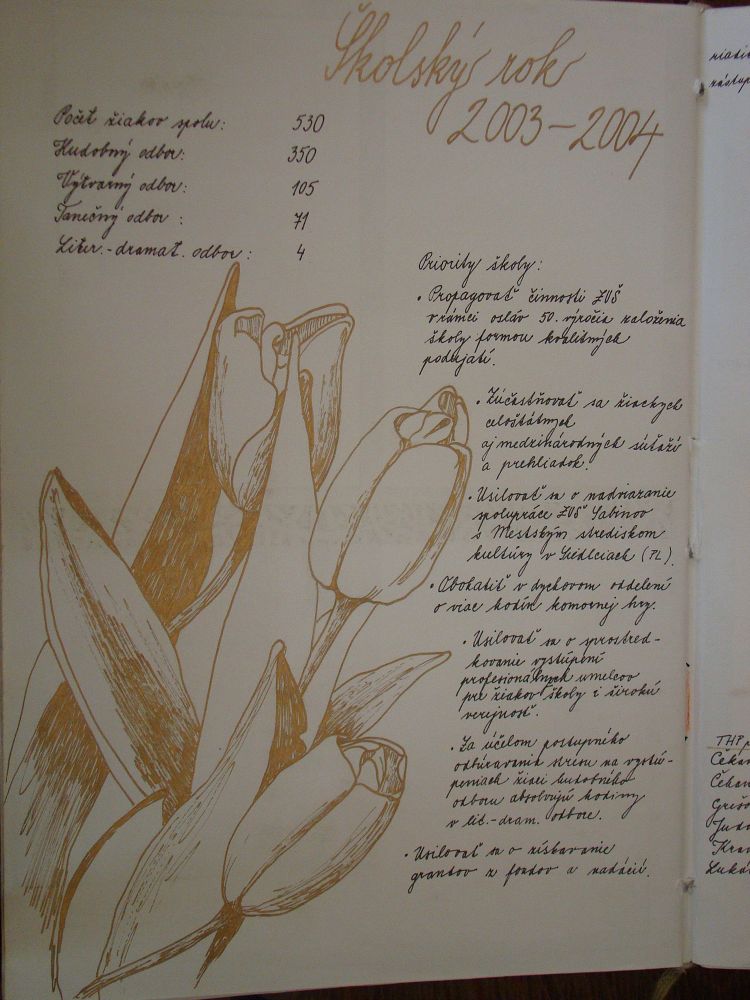 Školský rok
2003-2004
Počet žiakov spolu: 530
Hudobný odbor: 350
Výtvarný odbor: 105
Tanečný odbor : 71
Liter.-dramat. odbor : 4
Priority školy :
• Propagovať činnosti ZUŠ
v rámci osláv 50. výročia založenia
školy formou kvalitných
podujatí.
• Zúčastňovať sa žiackych
celoštátnych
aj medzinárodných súťaží
a prehliadok.
• Usilovať sa o nadviazanie
spolupráce ZUŠ Sabinov
s Mestským strediskom
kultúry v Siedlciach (PL).
• Obohatiť v dychovom oddelení
o viac hodín komornej hry.
• Usilovať sa o sprostred-
kovanie vystúpení
profesionálnych umelcov
pre žiakov školy i širokú
verejnosť.
• Za účelom postupného
odbúravania stresu na vystú-
peniach žiaci hudobného
odboru absolvujú hodiny
v lit.-dram. odbore.
• Usilovať sa o získavanie
grantov z fondov a nadácií.
THP